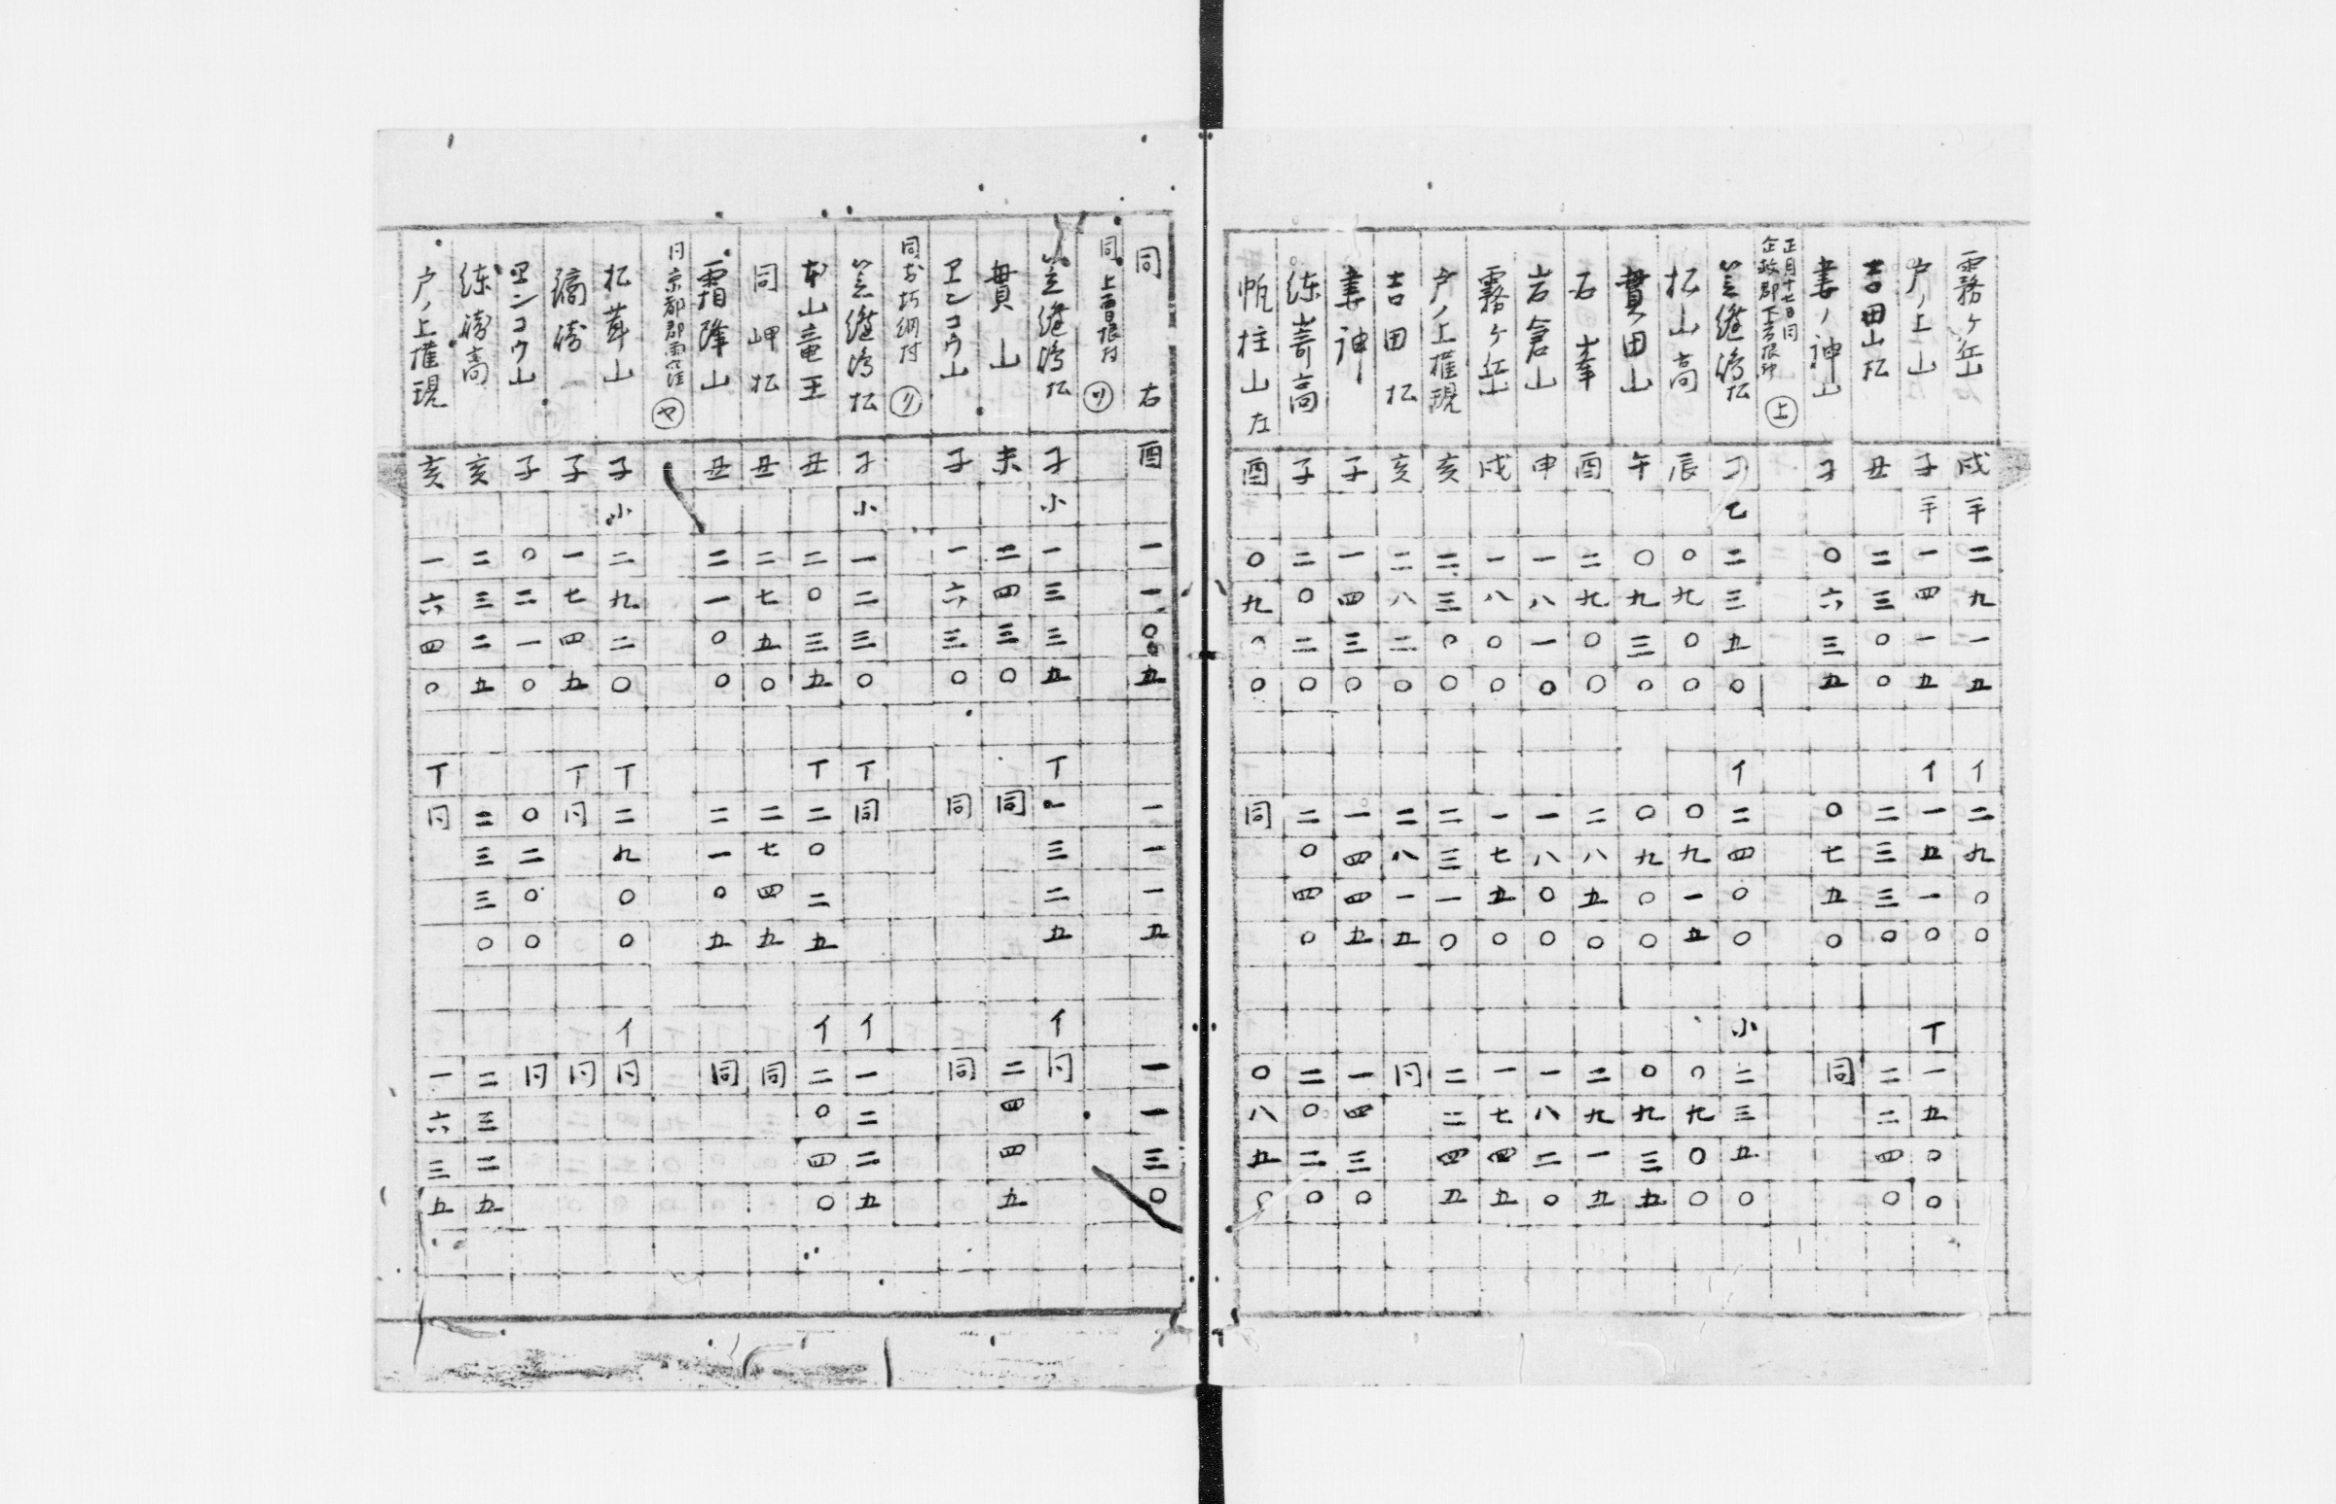 霧ヶ岳 戌 半 二九一五 イ 二九〇〇
戸ノ上山 子 半 一四一五 イ 一五一〇 丁 一五〇〇
吉田山松 丑 二三〇〇 二三三〇 二二四〇
妻ノ神山 子 〇六三五 〇七五〇 同
正月十七日同
企救郡下吉根 上
笠縫 松 子 乙 二三五〇 イ 二四〇〇 小 二三五〇
松山高 辰 〇九〇〇 〇九一五 〇九〇〇
貫田山 午 〇九三〇 〇九〇〇 〇九三五
石峯 酉 二九〇〇 二八五〇 二九一五
岩倉山 申 一八一〇 一八〇〇 一八二〇
霧ヶ岳 戌 一八〇〇 一七五〇 一七四五
戸ノ上権現 亥 二三〇〇 二三一〇 二二四五
吉田松 亥 二八二〇 二八一五 同
妻神 子 一四三〇 一四四五 一四三〇
練嵜高 子 二〇二〇 二〇四〇 二〇二〇
帆柱山左 酉 〇九〇〇 同 〇八五〇
同右 酉 一一〇五 一一一五 一一三〇
同上 村 ツ
笠縫 松 子 小 一三三五 丁 一三二五 イ 同
貫山 未 二四三〇 同 二四四五
ヱンコウ山 子 一六三〇 同 同
同 村 リ
笠縫 松 子 小 一二三〇 丁 同 イ 一二二五
本山竜王 丑 二〇三五 丁 二〇二五 イ 二〇四〇
同岬松 丑 二七五〇 二七四五 同
霜降山 丑 二一〇〇 二一〇五 同
同京都郡雨窪 ヤ
松茸山 子 小 二九二〇 丁 二九〇〇 イ 同
子 一七四五 丁 同 同
ヱンコウ山 子 〇二一〇 〇二〇〇 同
練 高 亥 二三二五 二三三〇 二三二五
戸ノ上権現 亥 一六四〇 丁 同 一六三五